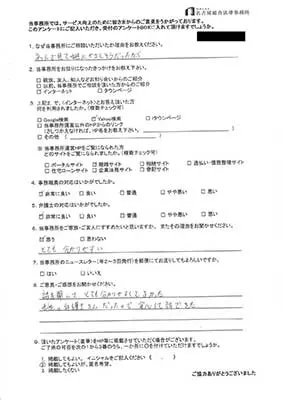 名古屋総合法律事務所
当事務所では、サービス向上のために皆さまからのご意見をうかがっております。
このアンケートにご記入いただき、受付のアンケートBOXに入れて頂けますでしょうか。
1. なぜ当事務所にご相談いただいたか理由をお教えください。
2. 当事務所をお知りになったきっかけをお教え下さい。
□ 親族、友人、知人などお知り合いからのご紹介
□ 以前、当事務所でご相談を頂いた方からのご紹介
☑ インターネット □ タウンページ
3. 上記2. で、《インターネット》とお答え頂いた方
何を利用されましたか。(複数チェック可)
□ Google検索 ☑ Yahoo検索 □ iタウンページ
□ 当事務所関連以外のHPからのリンク
(さしつかえなければ、HP名をお教え下さい。)
□ その他 ( )
※ 当事務所運営HPをご覧になられた方
どのサイトをご覧になられましたか。(複数チェック可)
□ ポータルサイト ☑ 離婚サイト □ 相続サイト □ 過払い・債務整理サイト
□ 住宅ローンサイト □ 企業法務サイト □ 登記サイト
4. 事務職員の対応はいかがでしたか。
☑ 非常に良い □ 良い □ 普通 □ やや悪い □ 悪い
5. 弁護士の対応はいかがでしたか。
☑ 非常に良い □ 良い □ 普通 □ やや悪い □ 悪い
6. 当事務所をご家族・ご友人にすすめたいと思いますか。またその理由をお聞かせください。
☑ 思う □ 思わない
とても分かりやすい
7. 当事務所のニュースレター(年2~3回発行)を郵便にてお送りしてもよろしいですか。
□ はい □ いいえ
8. ご意見・ご感想をお聞かせください。
9. 頂いたアンケート(直筆)をHP等に掲載させていただく場合がございます。
ご了承の可否を次の1から3番のうち、一か所に○を付けていただけますでしょうか。
1. 掲載してもよい。イニシャルをご記入ください ( . )
2. 掲載してもよいが、匿名希望。
3. 掲載したくない
ご協力ありがとうございました